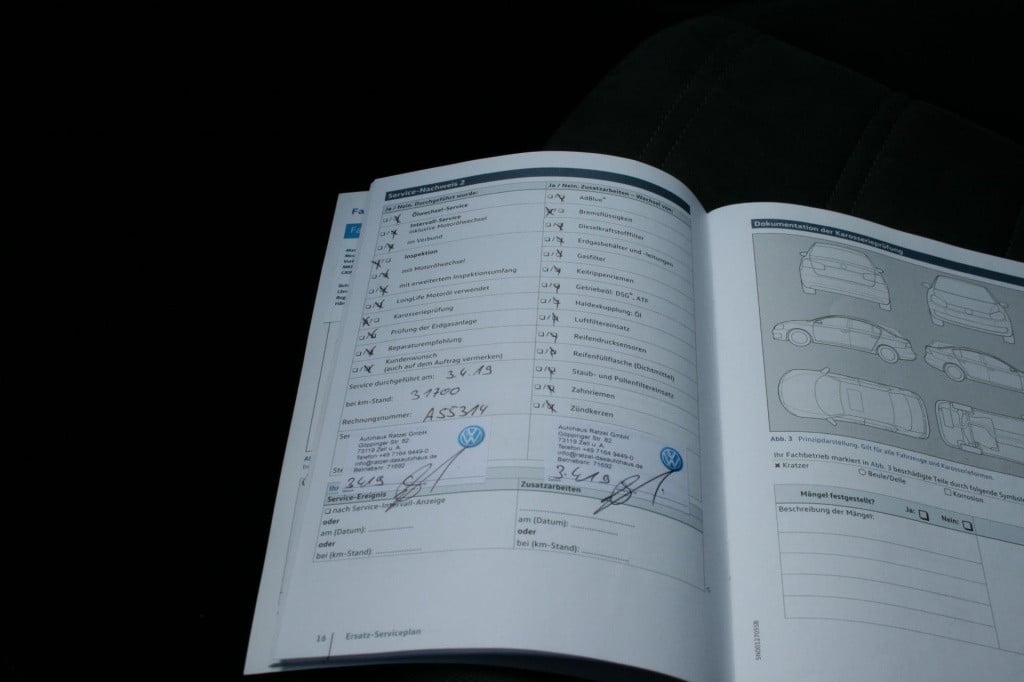 Service-Nachweis 2
Ja / Nein. Durchgeführt wurde:
Ölwechsel-Service
Intervall-Service
inklusive Motorölwechsel
im Verbund
Inspektion
mit Motorölwechsel
mit erweitertem Inspektionsumfang
LongLife Motoröl verwendet
Karosserieprüfung
Prüfung der Erdgasanlage
Reparaturempfehlung
Kundenwunsch
(euch auf dem Auftrag vermerken)
Service durchgeführt am: 3.4.19
bei km-Stand: 31700
Rechnungsnummer: A55314
Autohaus Ratzel GmbH
Göppinger Str. 82
73119 Zell u. A.
Telefon +49 7164 9449-0
info@ratzel-dasautohaus.de
Betriebsnr. 71692
3.4.19
Service-Ereignis
nach Service-Intervall-Anzeige
oder
am (Datum):
oder
bei (km-Stand):
Ja / Nein. Zusatzarbeiten – Wechsel von:
AdBlue®
Bremsflüssigkeit
Dieselkraftstofffilter
Erdgasbehälter und -leitungen
Gasfilter
Keilrippenriemen
Getriebeöl: DSG®, ATF
Haldexkupplung: Öl
Luftfiltereinsatz
Reifendrucksensoren
Reifenfüllflasche (Dichtmittel)
Staub- und Pollenfiltereinsatz
Zahnriemen
Zündkerzen
Autohaus Ratzel GmbH
Göppinger Str. 82
73119 Zell u. A.
Telefon +49 7164 9449-0
info@ratzel-dasautohaus.de
Betriebsnr. 71692
3.4.19
Zusatzarbeiten
am (Datum):
oder
bei (km-Stand):
16 Ersatz-Serviceplan
Dokumentation der Karosserieprüfung
Abb. 3 Prinzipdarstellung. Gilt für alle Fahrzeuge und Karosserieformen.
Ihr Fachbetrieb markiert in Abb. 3 beschädigte Teile durch folgende Symbole
Kratzer
Beule/Delle
Korrosion
Mängel festgestellt?
Ja:
Nein:
Beschreibung der Mängel: